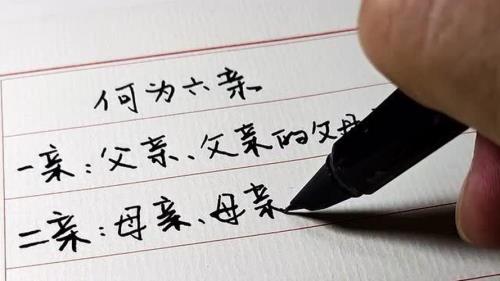 何为六亲
一亲:父亲、父亲的父母
二亲:母亲、母亲